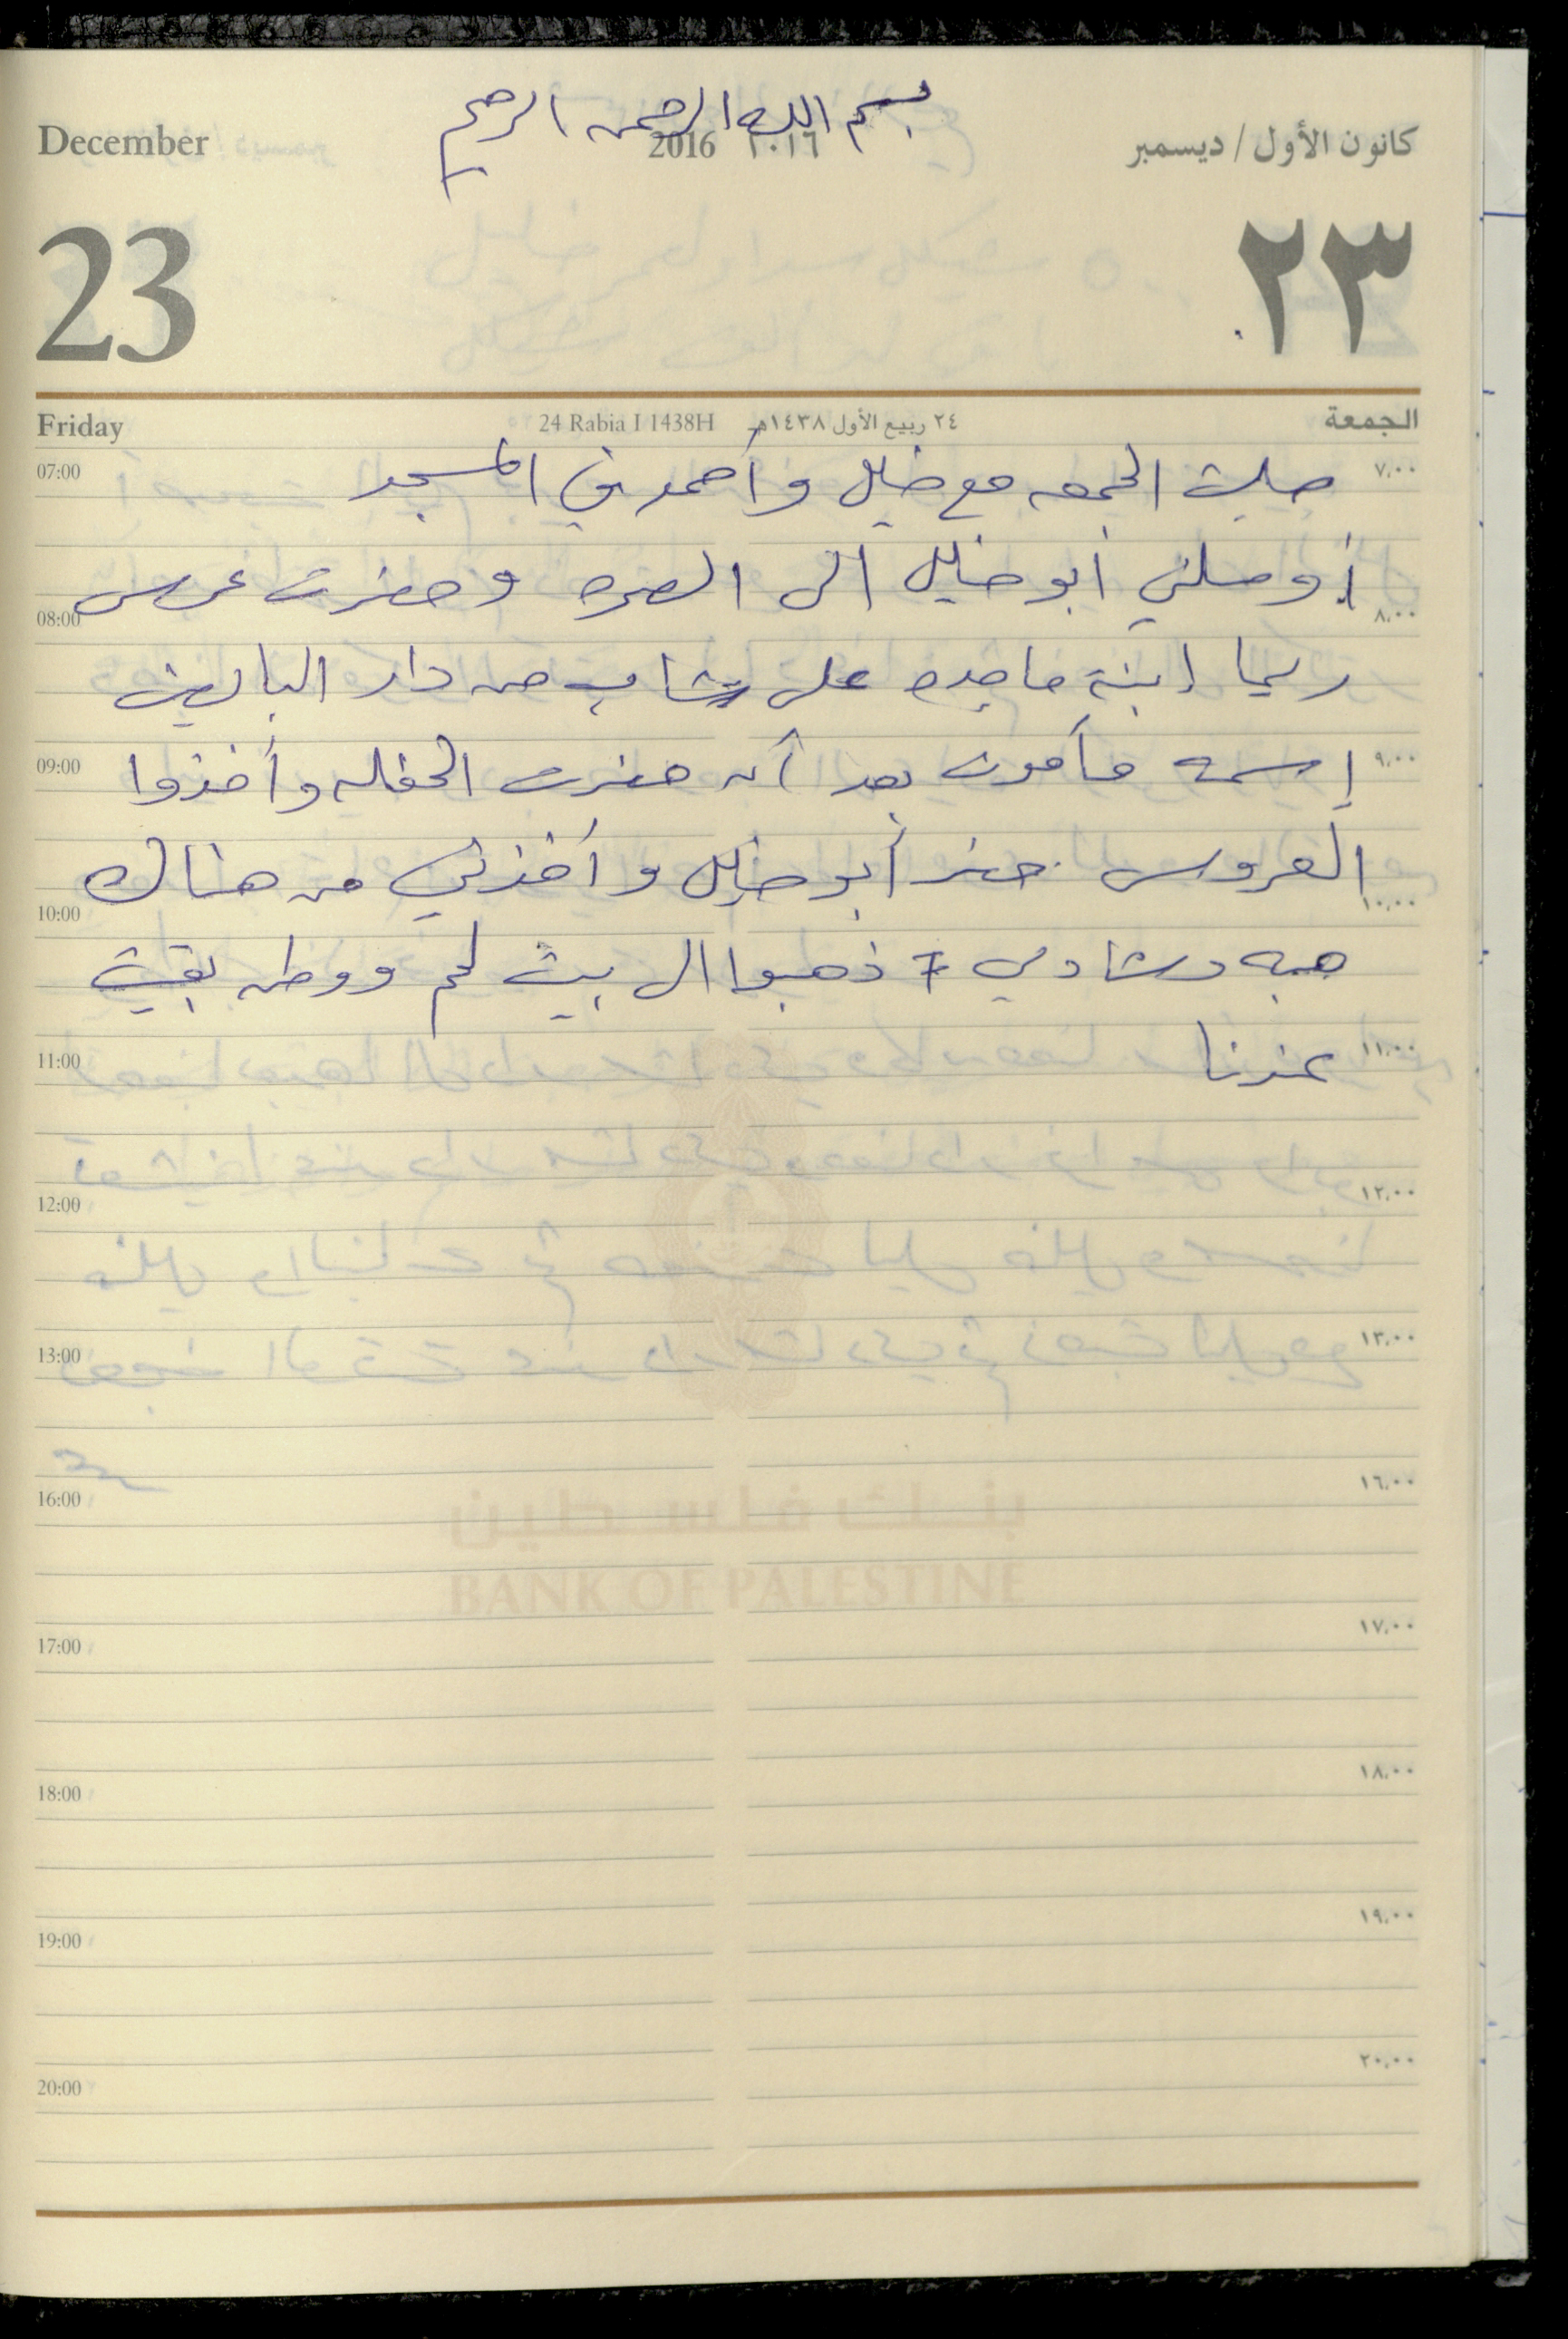 بسم الله الرحمن الرحيم
December 2016 ٢٠١٦ كانون الأول / ديسمبر
23 ٢٣
Friday 24 Rabia I 1438H ٢٤ ربيع الأول ١٤٣٨هـ الجمعة
07:00 صليت الجمعه مع خليل وأحمد في المسجد ٧,٠٠
أوصلني أبو خليل الى العمره وحضرت عرس
08:00 ٨,٠٠
ريما إبنة ماجده على شاب من دار
09:00 إسمه مأمون بعد أن حضرت الحفله وأخذوا ٩,٠٠
العروس حضر أبو خليل وأخذني من هناك
10:00 ١٠,٠٠
هبه وشادي ذهبوا الى بيت لحم ووطن بقيت
11:00 عندنا ١١,٠٠
12:00 ١٢,٠٠
13:00 ١٣,٠٠
16:00 ١٦,٠٠
بنك فلسطين
BANK OF PALESTINE
17:00 ١٧,٠٠
18:00 ١٨,٠٠
19:00 ١٩,٠٠
20:00 ٢٠,٠٠